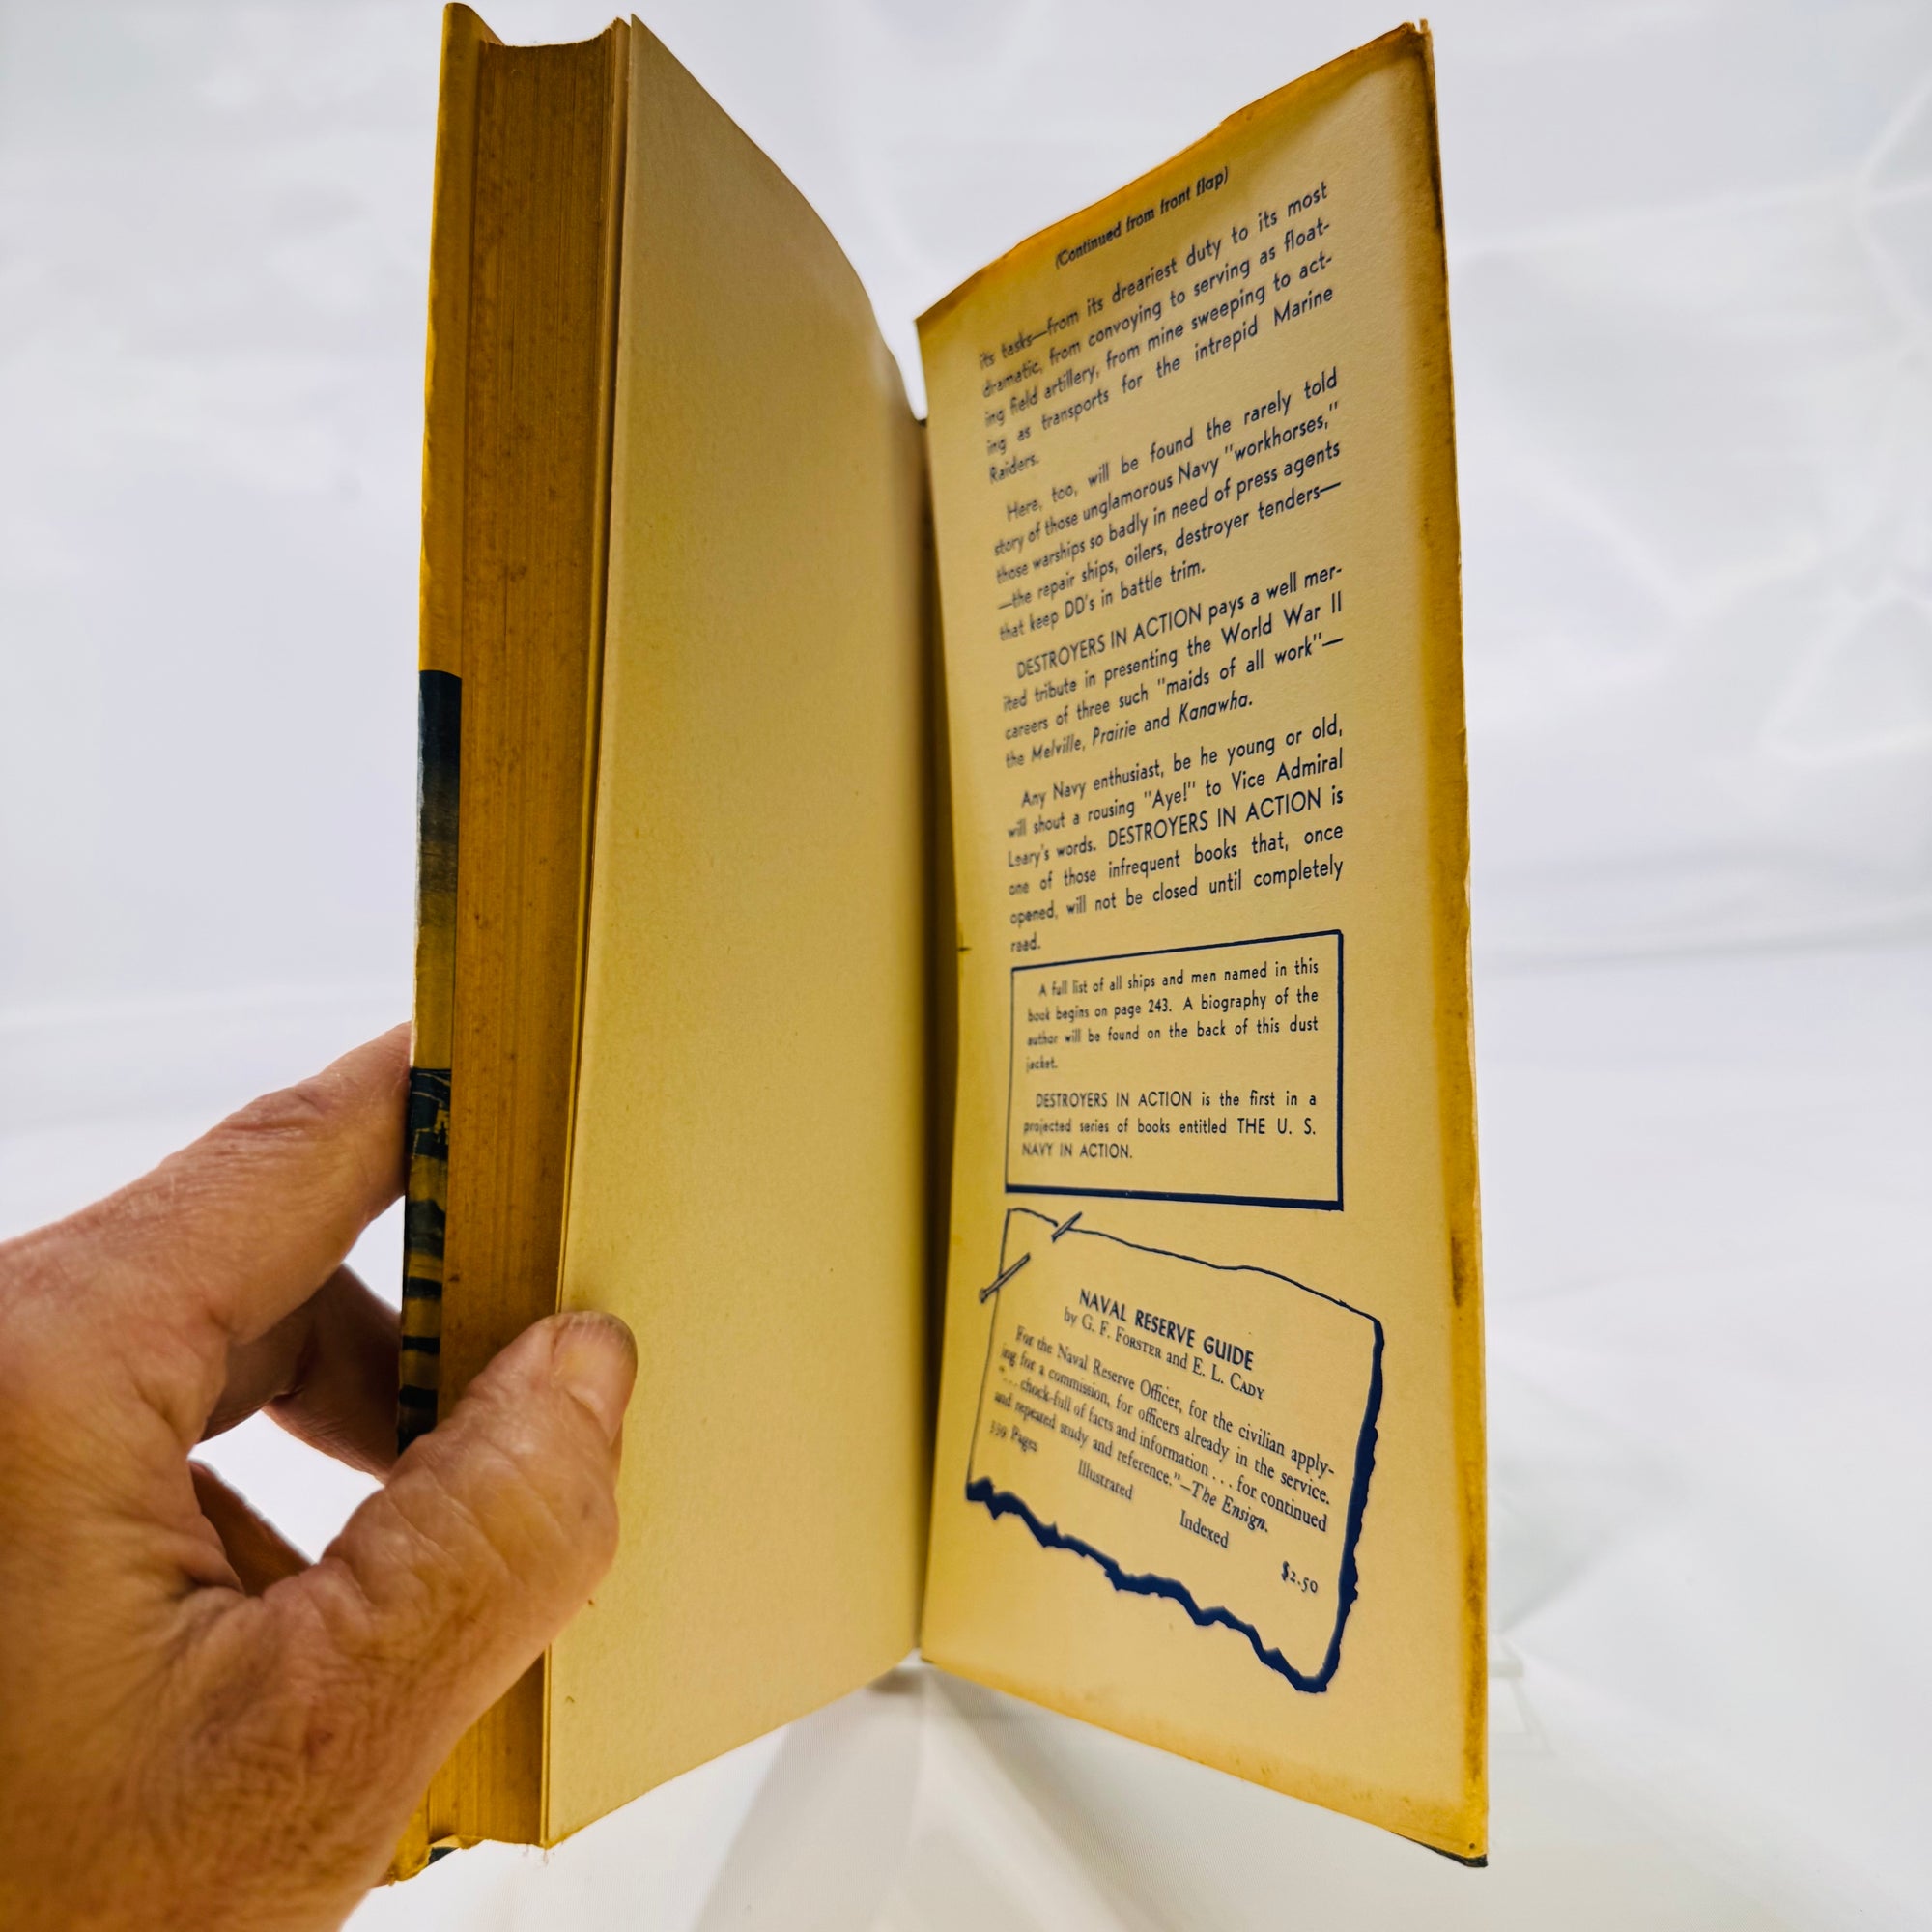 (Continued from front flap)
its tasks—from its dreariest duty to its most
dramatic, from convoying to serving as float-
ing field artillery, from mine sweeping to act-
ing as transports for the intrepid Marine
Raiders.
Here, too, will be found the rarely told
story of those unglamorous Navy "workhorses,"
those warships so badly in need of press agents
—the repair ships, oilers, destroyer tenders—
that keep DD's in battle trim.
DESTROYERS IN ACTION pays a well mer-
ited tribute in presenting the World War II
careers of three such "maids of all work"—
the Melville, Prairie and Kanawha.
Any Navy enthusiast, be he young or old,
will shout a rousing "Aye!" to Vice Admiral
Leary's words. DESTROYERS IN ACTION is
one of those infrequent books that, once
opened, will not be closed until completely
read.
A full list of all ships and men named in this
book begins on page 243. A biography of the
author will be found on the back of this dust
jacket.
DESTROYERS IN ACTION is the first in a
projected series of books entitled THE U. S.
NAVY IN ACTION.
NAVAL RESERVE GUIDE
by G. F. FORSTER and E. L. CADY
For the Naval Reserve Officer, for the civilian apply-
ing for a commission, for officers already in the service.
"... chock-full of facts and information ... for continued
and repeated study and reference."—The Ensign.
339 Pages Illustrated Indexed $2.50